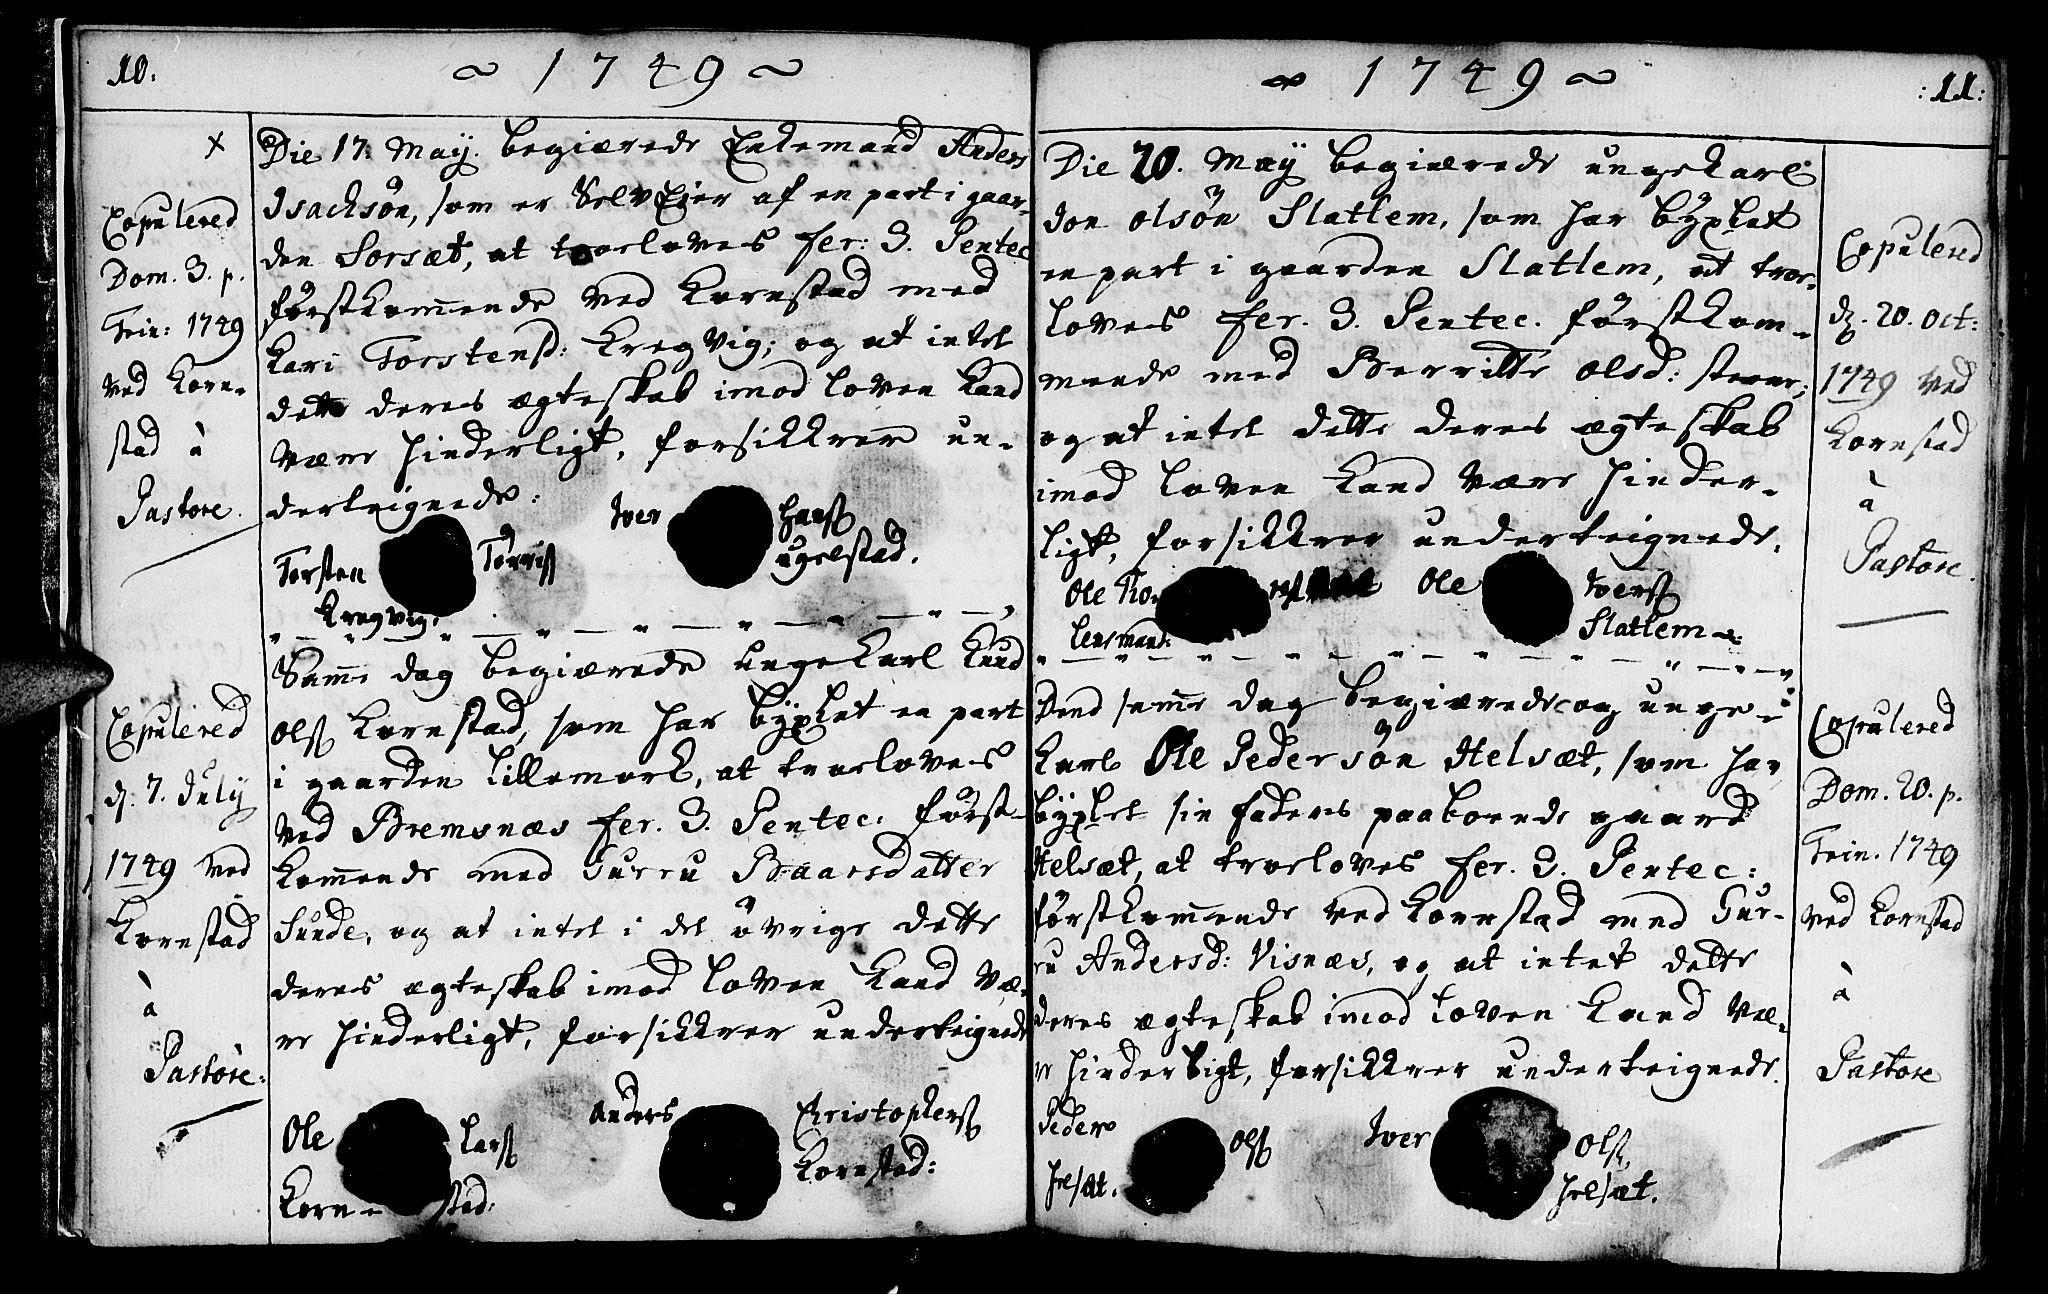 10.
~ 1749 ~
x
Copulered
Dom. 3. p.
Trin: 1749
ved Korn-
stad à
Pastore.
Die 17. May. begiærede Enkemand Anders
Isachsön, som er SelvEjer af en part i gaar-
den Sorsæt, at troeloves fer: 3. Pentec
förstkom̅ende ved Kornstad med
Kari Torstensd: Kregvig; og at intet
dette deres ægteskab imod loven kand
være hinderligt, forsikkrer un-
derteignede:
Torsten Torriss
Kregvig.
Iver Hanss
Ugelstad.
Copulered
d. 7. July
1749 ved
Kornstad
à
Pastore:
Sam̅e dag begiærede ungekarl Knud
Olss Kornstad, som har byxlet en part
i gaarden Lillemork, at troeloves
ved Bremsnæs fer. 3. Pentec. först-
kom̅ende med Gurru Baarsdatter
Sunde, og at intet i det övrige dette
deres ægteskab imod loven kand væ-
re hinderligt, forsikkrer underteignede
Ole Larss
Korn- stad:
Anders Christopherss
Kornstad:
~ 1749 ~
:11:
Die 20. May begiærede ungekarl
Jon Olsön Slatlem, som har byxlet
en part i gaarden Slatlem, at troe-
loves fer. 3. Pentec. förstkom-
mende med Berritte Olsd:
og at intet dette deres ægteskab
imod loven kand være hinder-
ligt, forsikkrer underteignede.
Ole
Lensmand.
Ole Iverss
Slatlem
Copulered
d. 20. Oct:
1749 ved
Kornstad
à
Pastore.
Dend sam̅e dag begiærede og unge-
karl Ole Pedersön Helsæt, som har
byxlet sin faders paaboende gaard
Helsæt, at troeloves fer. 3. Pentec:
förstkom̅ende ved Kornstad med Gur-
ru Andersd: Visnæs, og at intet dette
deres ægteskab imod loven kand væ-
re hinderligt, forsikkrer underteignede.
Peder Olss
Helsæt.
Iver Olss.
Helsæt.
Copulered
Dom. 20. p.
Trin. 1749
ved Kornstad
à
Pastore